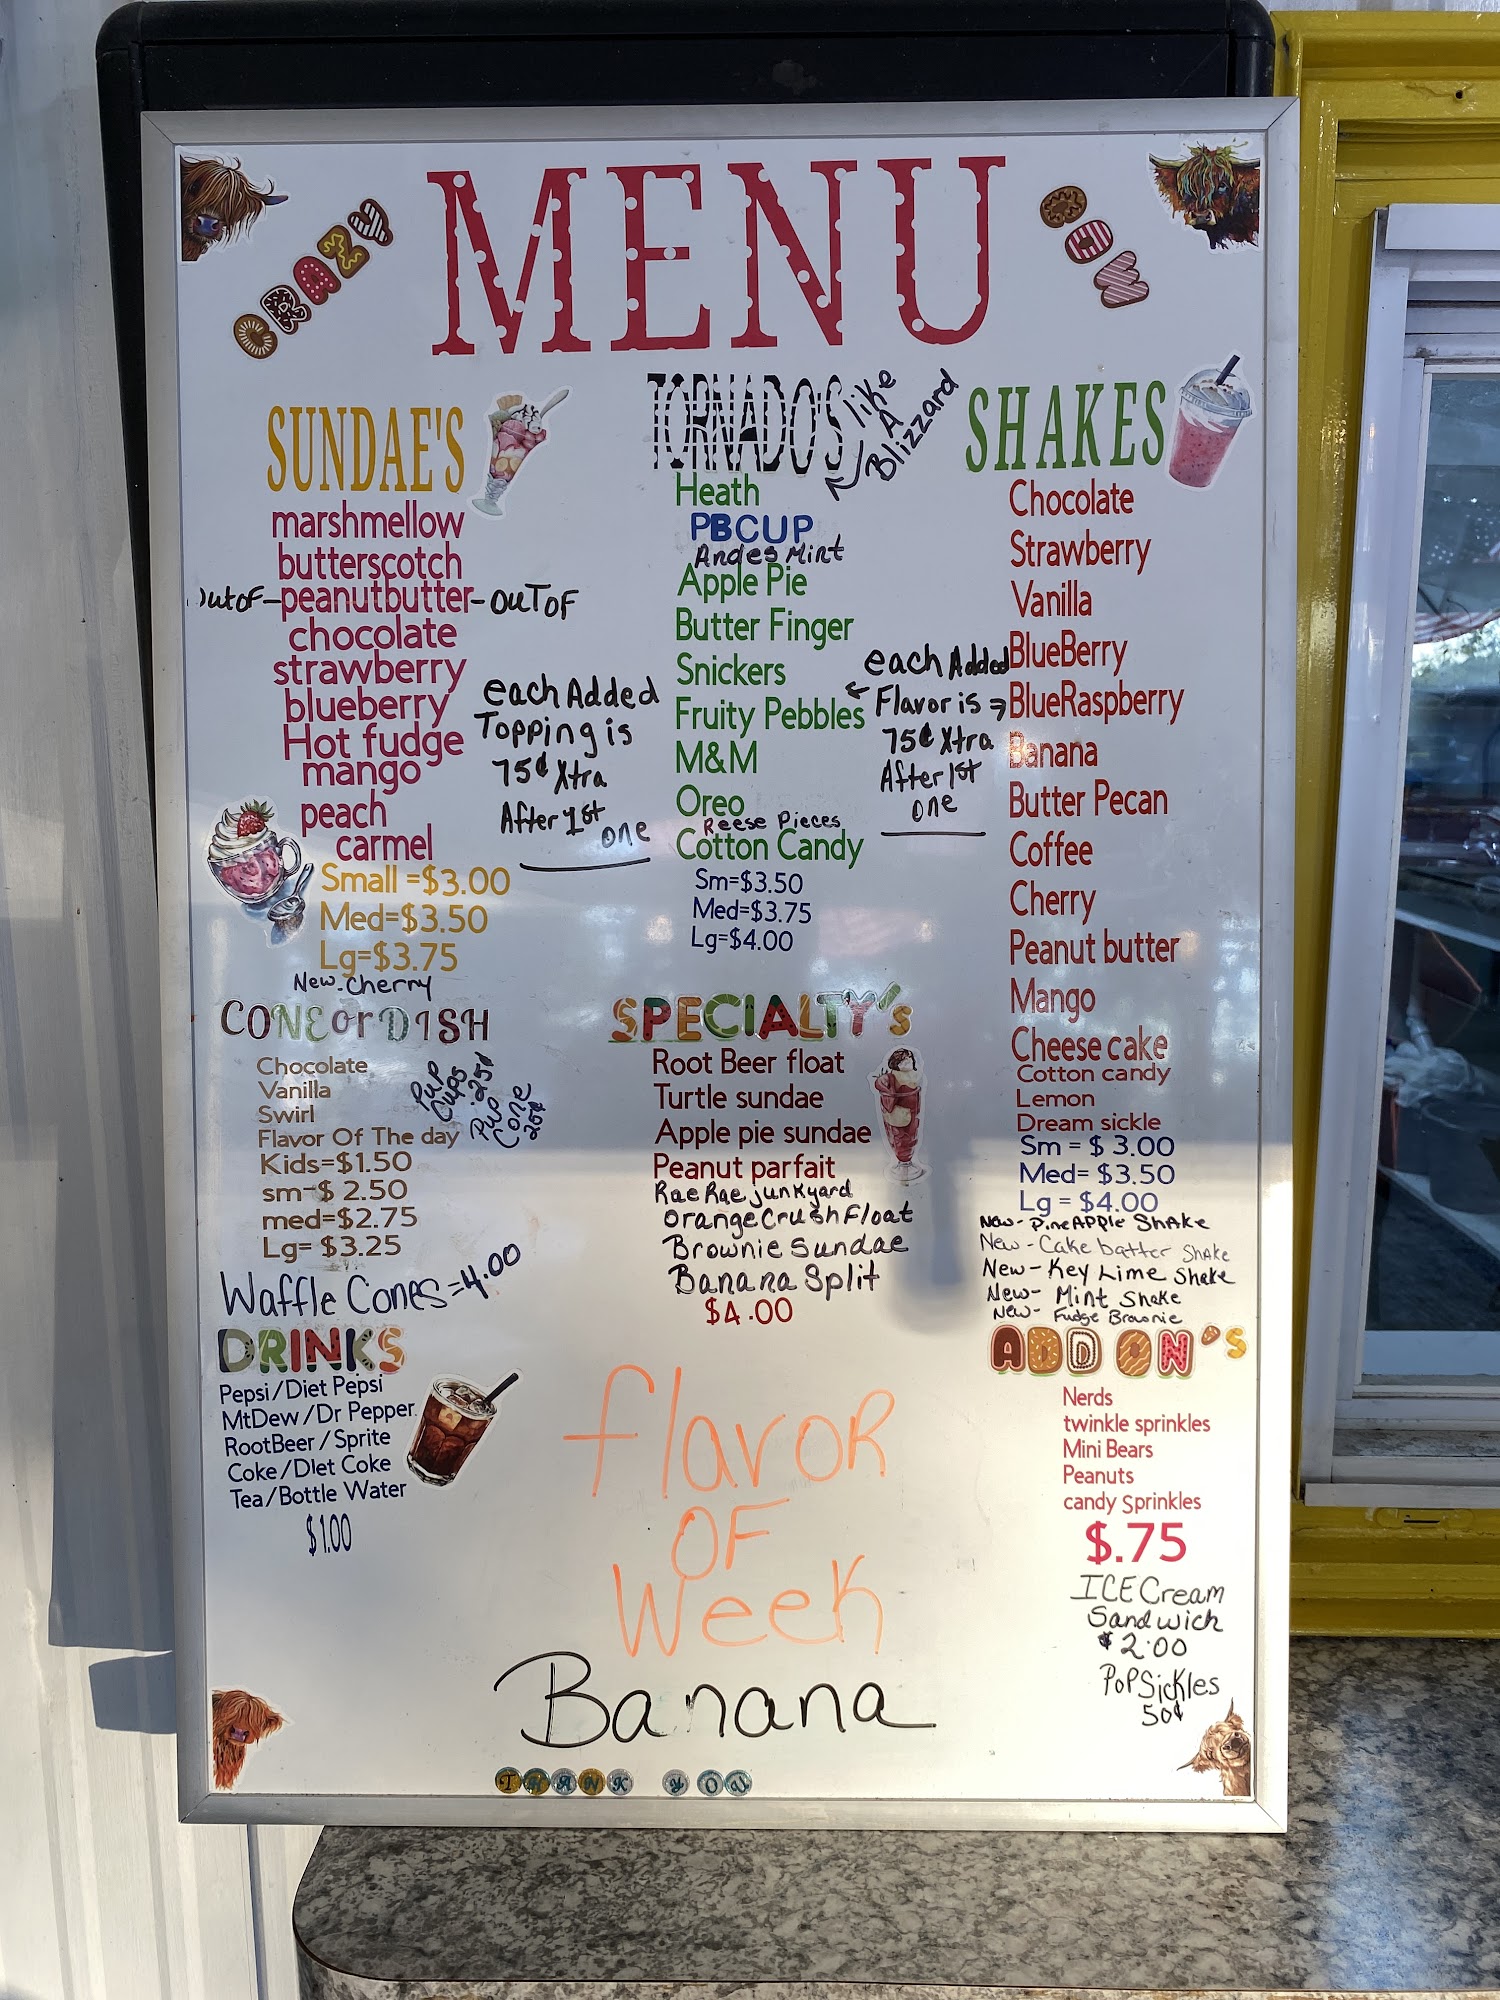 CRAZY
MENU
COW
SUNDAE'S
marshmellow
butterscotch
outof-peanutbutter-OUTOF
chocolate
strawberry
blueberry
Hot fudge
mango
peach
carmel
Small =$3.00
Med=$3.50
Lg=$3.75
New-Cherry
each Added
Topping is
75¢ Xtra
After 1st
one
TORNADO'S
like
A
Blizzard
Heath
PBCUP
Andes Mint
Apple Pie
Butter Finger
Snickers
Fruity Pebbles
M&M
Oreo
Reese Pieces
Cotton Candy
Sm=$3.50
Med=$3.75
Lg=$4.00
each Added
Flavor is
75¢ Xtra
After 1st
one
SHAKES
Chocolate
Strawberry
Vanilla
BlueBerry
BlueRaspberry
Banana
Butter Pecan
Coffee
Cherry
Peanut butter
Mango
Cheese cake
Cotton candy
Lemon
Dream sickle
Sm = $ 3.00
Med= $3.50
Lg = $4.00
New- PineAPPle Shake
New- Cake batter Shake
New- Key Lime Shake
New- Mint Shake
New- Fudge Brownie
CONE or DISH
Chocolate
Vanilla
Swirl
Flavor Of The day
Kids=$1.50
sm-$ 2.50
med=$2.75
Lg= $3.25
Pup
Cups
.25¢
Pup
Cone
25¢
Waffle Cones=4.00
SPECIALTY's
Root Beer float
Turtle sundae
Apple pie sundae
Peanut parfait
Rae Rae junkyard
OrangeCrushFloat
Brownie Sundae
Banana Split
$4.00
DRINKS
Pepsi/Diet Pepsi
MtDew/Dr Pepper
RootBeer/Sprite
Coke/Diet Coke
Tea/Bottle Water
$1.00
flavor
OF
Week
Banana
ADD ON'S
Nerds
twinkle sprinkles
Mini Bears
Peanuts
candy Sprinkles
$.75
ICE Cream
Sandwich
$2.00
PoPSickles
50¢
THANK YOU